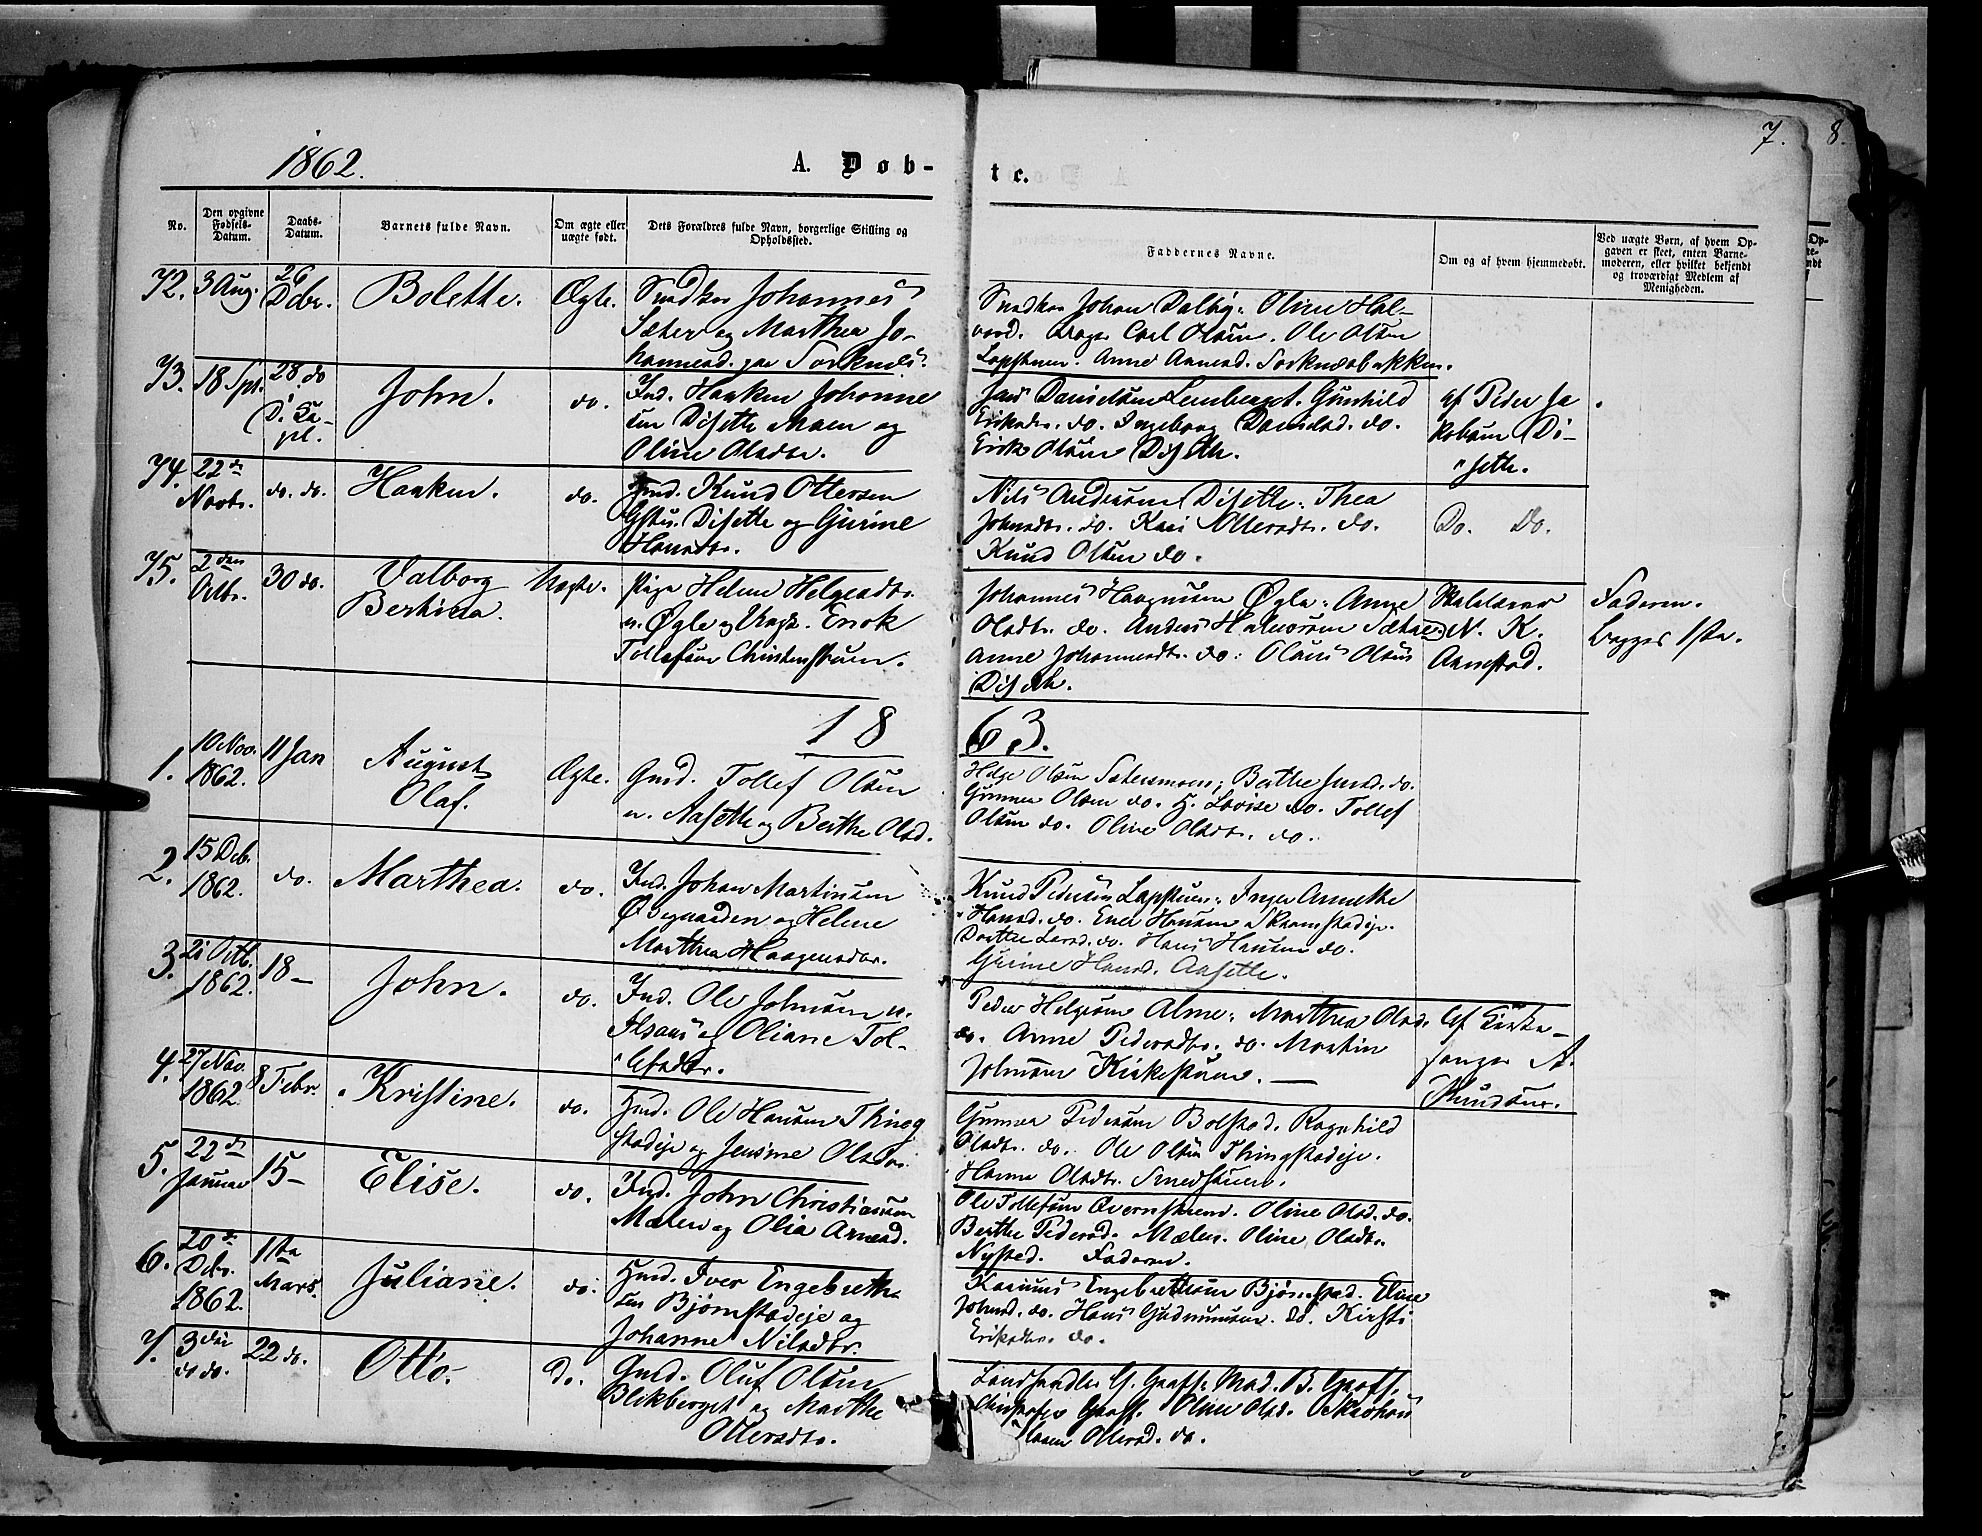 7. 8.
1862. A. Døb- te.
No.
Den opgivne Fødsels-Datum.
Daabs-Datum.
Barnets fulde Navn.
Om ægte eller uægte født.
Dets Forældres fulde Navn, borgerlige Stilling og Opholdssted.
Faddernes Navne.
Om og af hvem hjemmedøbt.
Ved uægte Børn, af hvem Opgaven er skeet, enten Barnemoderen, eller hvilket bekjendt og troværdigt Medlem af Menigheden.
72. 3 Aug. 26 Dcbr. Bolette. Ægte. Snedker Johannes
Sæter og Marthea Jo-
hannesd. paa Sorknes.
Snedker Johan Dalby. Oline Hal-
vord. Carl Olsen. Ole Olsen
Lapstuen. Anne Aamod. Sorknæsbakken.
73. 18 Spt. 28. do John. do. Ind. Haaken Johanne
sen Disette Moen og
Oline Olsdtr.
Jens Danielsen Lemberget. Gunhild
Eriksdr. do. Ingeborg Danielsd. do.
Erik Olsen Diseth.
af Peder Ja
kobsen Di-
sette.
74. 22de Novbr. do. do. Haaken. do. Knud Ottersen
Disette og Gurine
Hansdtr.
Nils Andersen Disette. Thea
Johnsdtr. do. Kari Ottersdtr. do.
Knud Olsen do.
Do. Do.
75. 2den Octbr. 30 do. Valborg
Bertina. Uægte. Pige Helene Helgesdtr.
n. Øgle og Ungk. Enok
Tollefsen Christenstuen.
Johannes Haagensen Øgle. Anne
Olsdtr. do. Anders Halvorsen Sæter.
Anne Johannesdtr. do. Olaus Olsen
Diseth.
Skolelærer
N. K.
Aamstad.
Faderen.
begges 1ste.
18 63.
1. 10 Nov. 1862. 11 Jan August
Olaf. Ægte. Gmd. Tollef Olsen
n. Aasette og Berthe Olsd.
Helge Olsen Sætersmoen; Berthe do.
Gunner Olsen do. H. Lovise do. Tollef
Olsen do. Oline Olsdtr. do.
2. 15 Dcb. 1862. do. Marthea. do. Ind. Johan Martinsen
Østgaarden og Helene
Marthea Haagensdtr.
Knud Pedersen Lapstuen. Inger Annethe
Hansd. do. Hansen
Dorthe Larsd. do. Hans Hansen do.
Gurine Hansd. Aasette.
3. 21 Octb. 1862. 18 – John. do. Ind. Ole Johnsen n.
og Oliane Tol-
lefsdtr.
Peder Helgesen Alme. Marthea Olsd.
do. Anne Pedersdtr. do. Martin
Johnsen Kirkestuen. —
af Kirke-
sanger A.
Knudsen.
4. 27 Nov. 1862. 8 Febr. Kristine. do. Hmd. Ole Hansen Thing
stadeje og Jensine Olsdtr.
Gunner Pedersen Bolstad. Ragnhild
Olsdtr. do. Ole Olsen Thingstadeje.
Hanne Olsdtr. Smedstuen.
5. 22de Januar 15 – Elise. do. Ind. John Christiansen
Mælen og Olia Arnesd.
Ole Tollefsen Qvernstuen. Oline Olsd. do.
Berthe Pedersd. Mælen. Oline Olsdtr.
Nysted. Faderen.
6. 20de Dcbr. 1862. 1ste Mars. Juliane. do. Hmd. Iver Engebreth
sen Bjørnstadeje og
Johanne Nilsdtr.
Engebrethsen Bjørnstad. Eline
Johnsd. do. Hans Gudmunsen do. Kirsti
Eriksdtr. do.
7. 3die do do. 22 do. Otto. Do. Gmd. Oluf Olsen
Blikberget og Marthe
Ottersdtr.
Landhandler G. Graff. Mad. B. Graff.
Christofer Graff. Oline Olsd.
Ottersd. do.